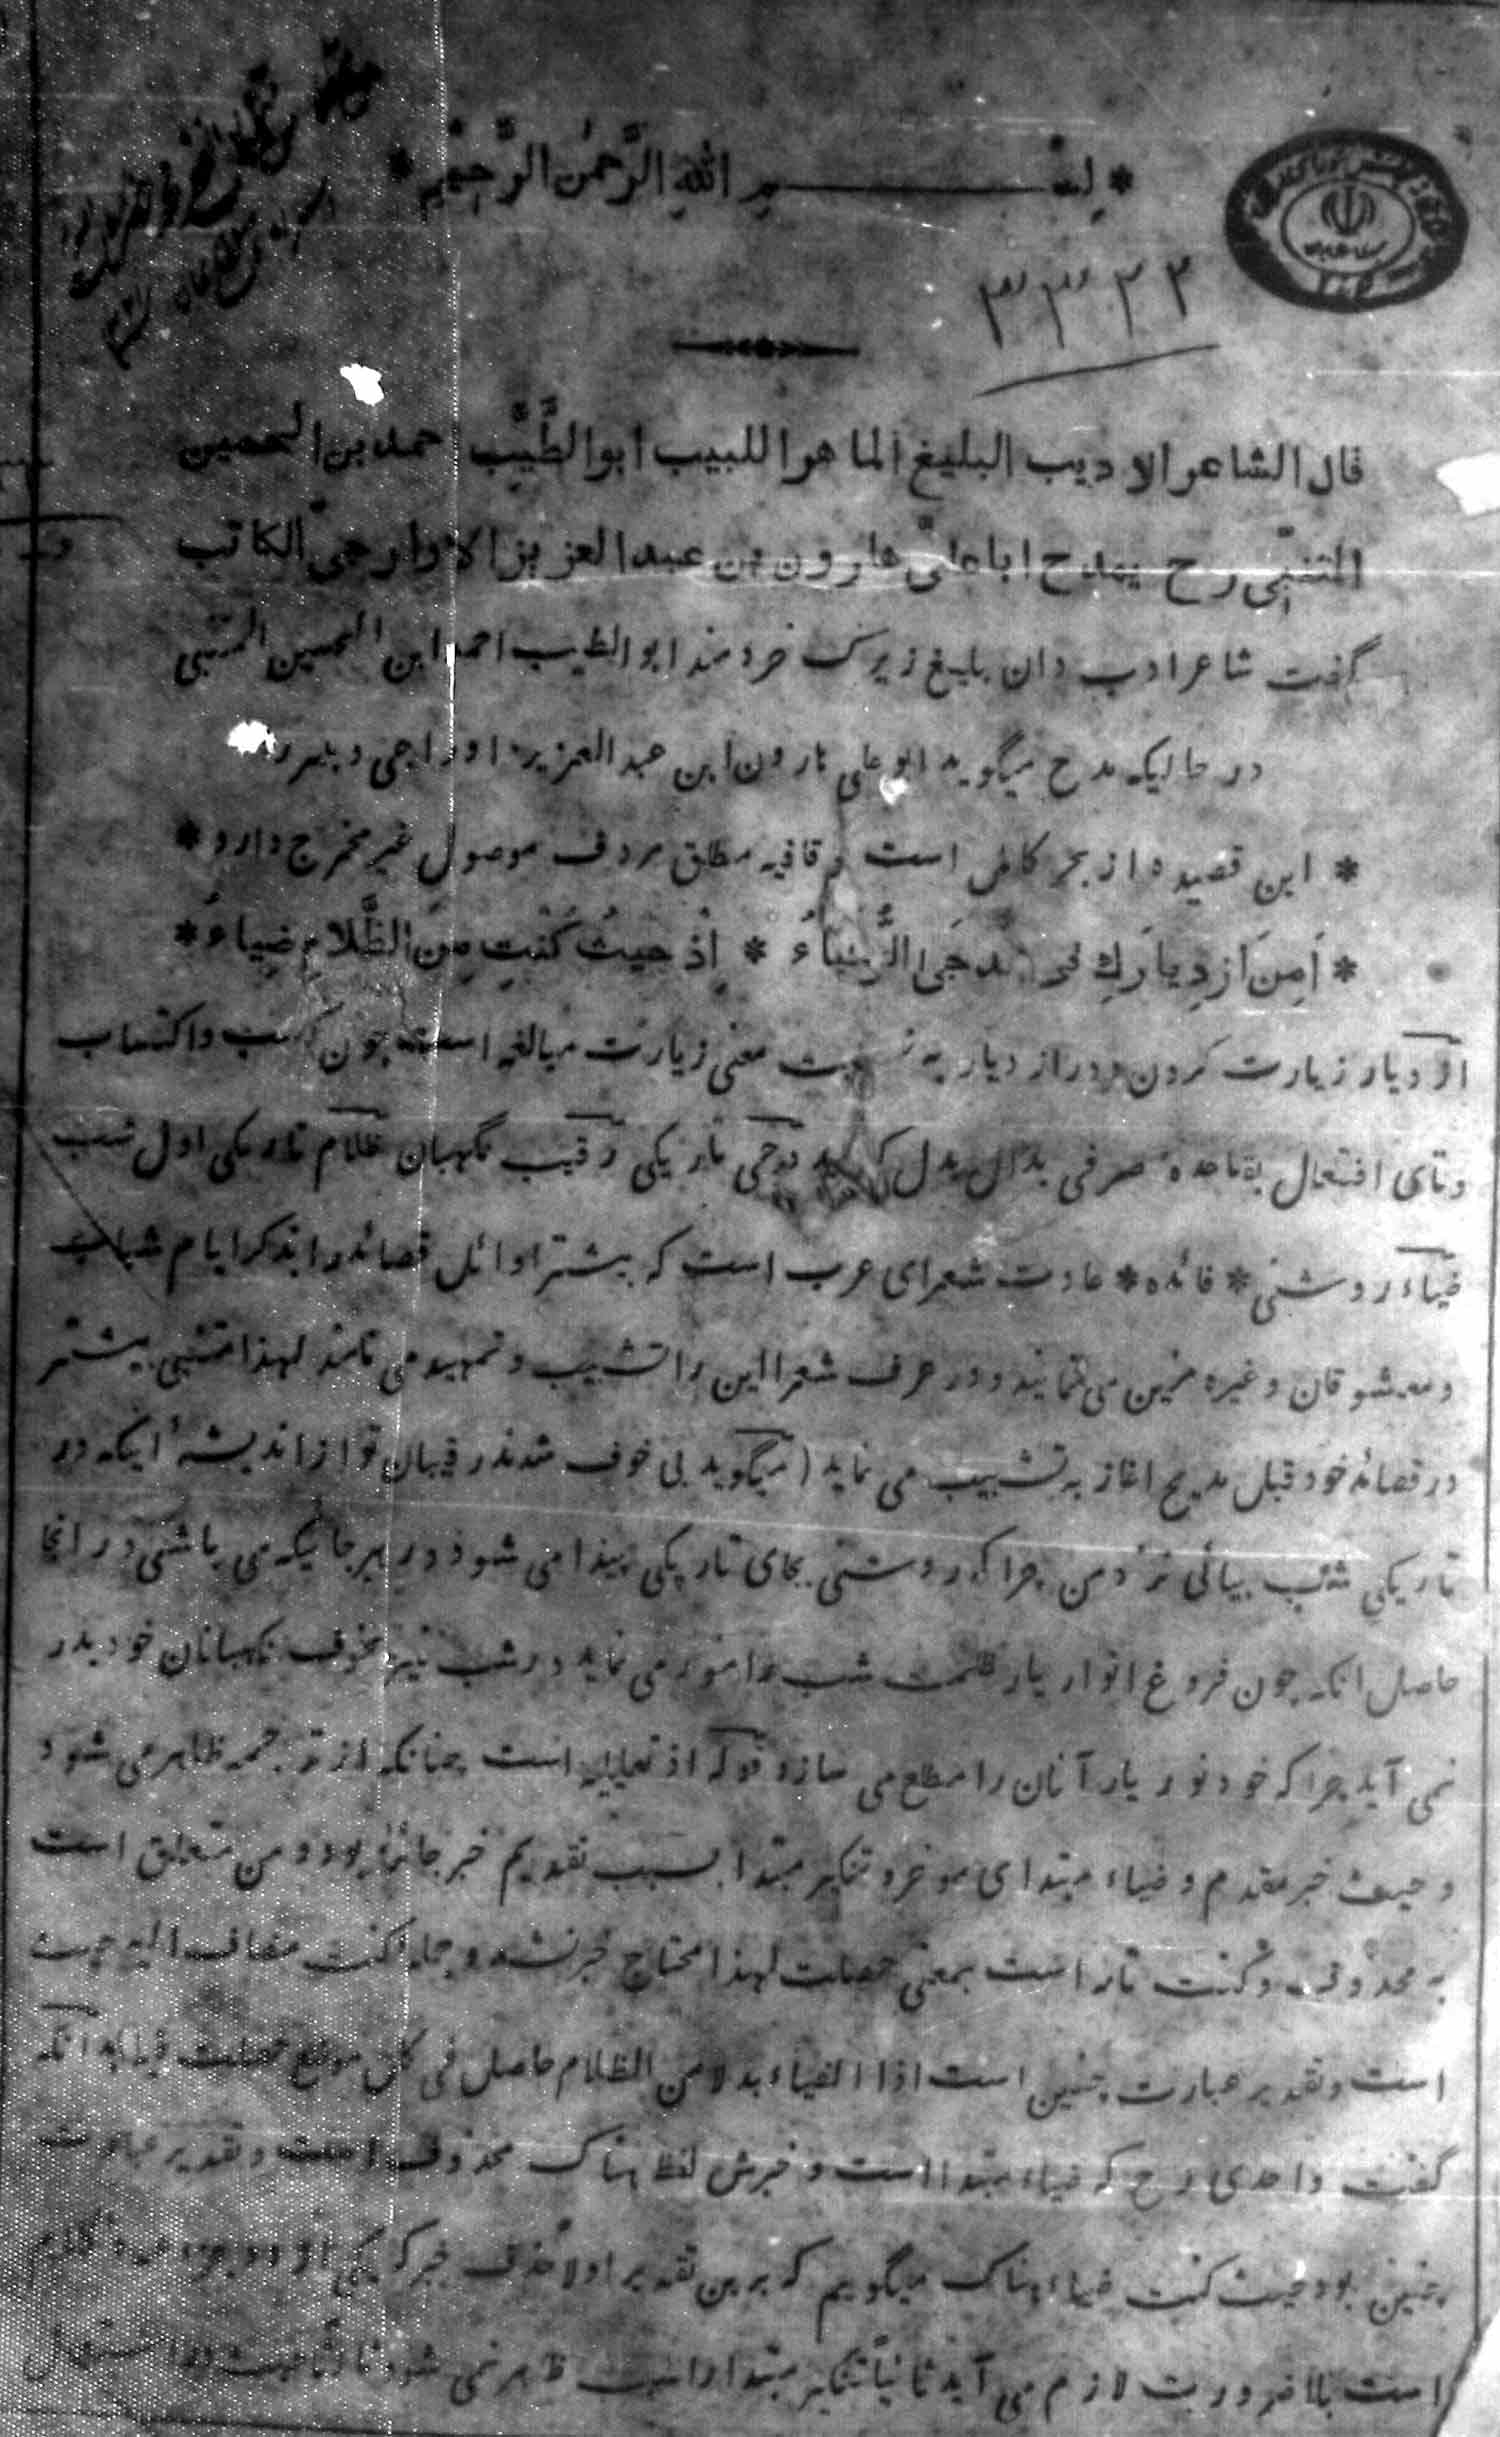 * بسم الله الرحمن الرحيم *
٣٣٢٢
قال الشاعر الاديب البليغ الماهر اللبيب ابو الطَّيِّب احمد بن الحسين
المتنبّى رح يمدح ابا علىّ هارون بن عبد العزيز الاوارجىّ الكاتب
گفت شاعر ادب دان بليغ زيرک خردمند ابو الطيب احمد ابن الحسين المتنبى
در حاليکه مدح ميگويد ابو علی هارون ابن عبد العزيز اوراجی دبير را
* اين قصيده از بحر کامل است و قافيه مطلق مردف موصول غير مخرج دارد *
* اَمِنَ ازدِيارَكِ فى الدُّجَى الرُّقَباءُ * اِذْ حيثُ كُنْتِ مِنَ الظَّلامِ ضِياءُ *
ازديار زيارت کردن و در ازديار به نسبت معنی زيارت مبالغه است چون کسب و اکتساب
و تای افتعال بقاعده صرفی بدال بدل گرديد دجی تاريکی رقيب نگهبان ظلام تاريکی اول شب
ضياء روشنی * فائده * عادت شعرای عرب است که بيشتر اوائل قصائد را بذکر ايام شباب
و معشوقان و غيره مزين می نمايند و در عرف شعرا اين را تشبيب و تمهيد می نامند لهذا متنبی بيشتر
در قصائد خود قبل مديح اغاز به تشبيب می نمايد (ميگويد بی خوف شدند رقيبان تو از انديشهٔ اينکه در
تاريکی شب بيائی نزد من چرا که روشنی بجای تاريکی پيدا می شود در هر جائيکه می باشی در انجا
حاصل انکه چون فروغ انوار يار ظلمت شب را منور می نمايد در شب نيز بخوف نگهبانان خود بدر
نمی آيد چرا که خود نور يار آنان را مطلع می سازد قوله اذ تعليليه است چنانکه از ترجمه ظاهر می شود
و حيث خبر مقدم و ضياء مبتدای موخر و تنکير مبتدا بسبب تقديم خبر جائز بود و من متعلق است
به محذوف و کنت تامه است بمعنی حصلت لهذا محتاج خبر نشد و جمله کنت مضاف اليه حيث
است و تقدير عبارت چنين است اذا الضياء بدلا من الظلام حاصل فی کل موضع حصلت فيه انکه
گفت واحدی رح که ضياء مبتدا است و خبرش لفظ هناک محذوف است و تقدير عبارت
چنين بود حيث کنت ضياء هناک ميگويم که برين تقدير اولا حذف خبر که يکی از دو جزو کلام
است بلا ضرورت لازم می آيد ثانياً تنکير مبتدا راسبب ظاهر نمی شود ثالثاً حيث را استعمال